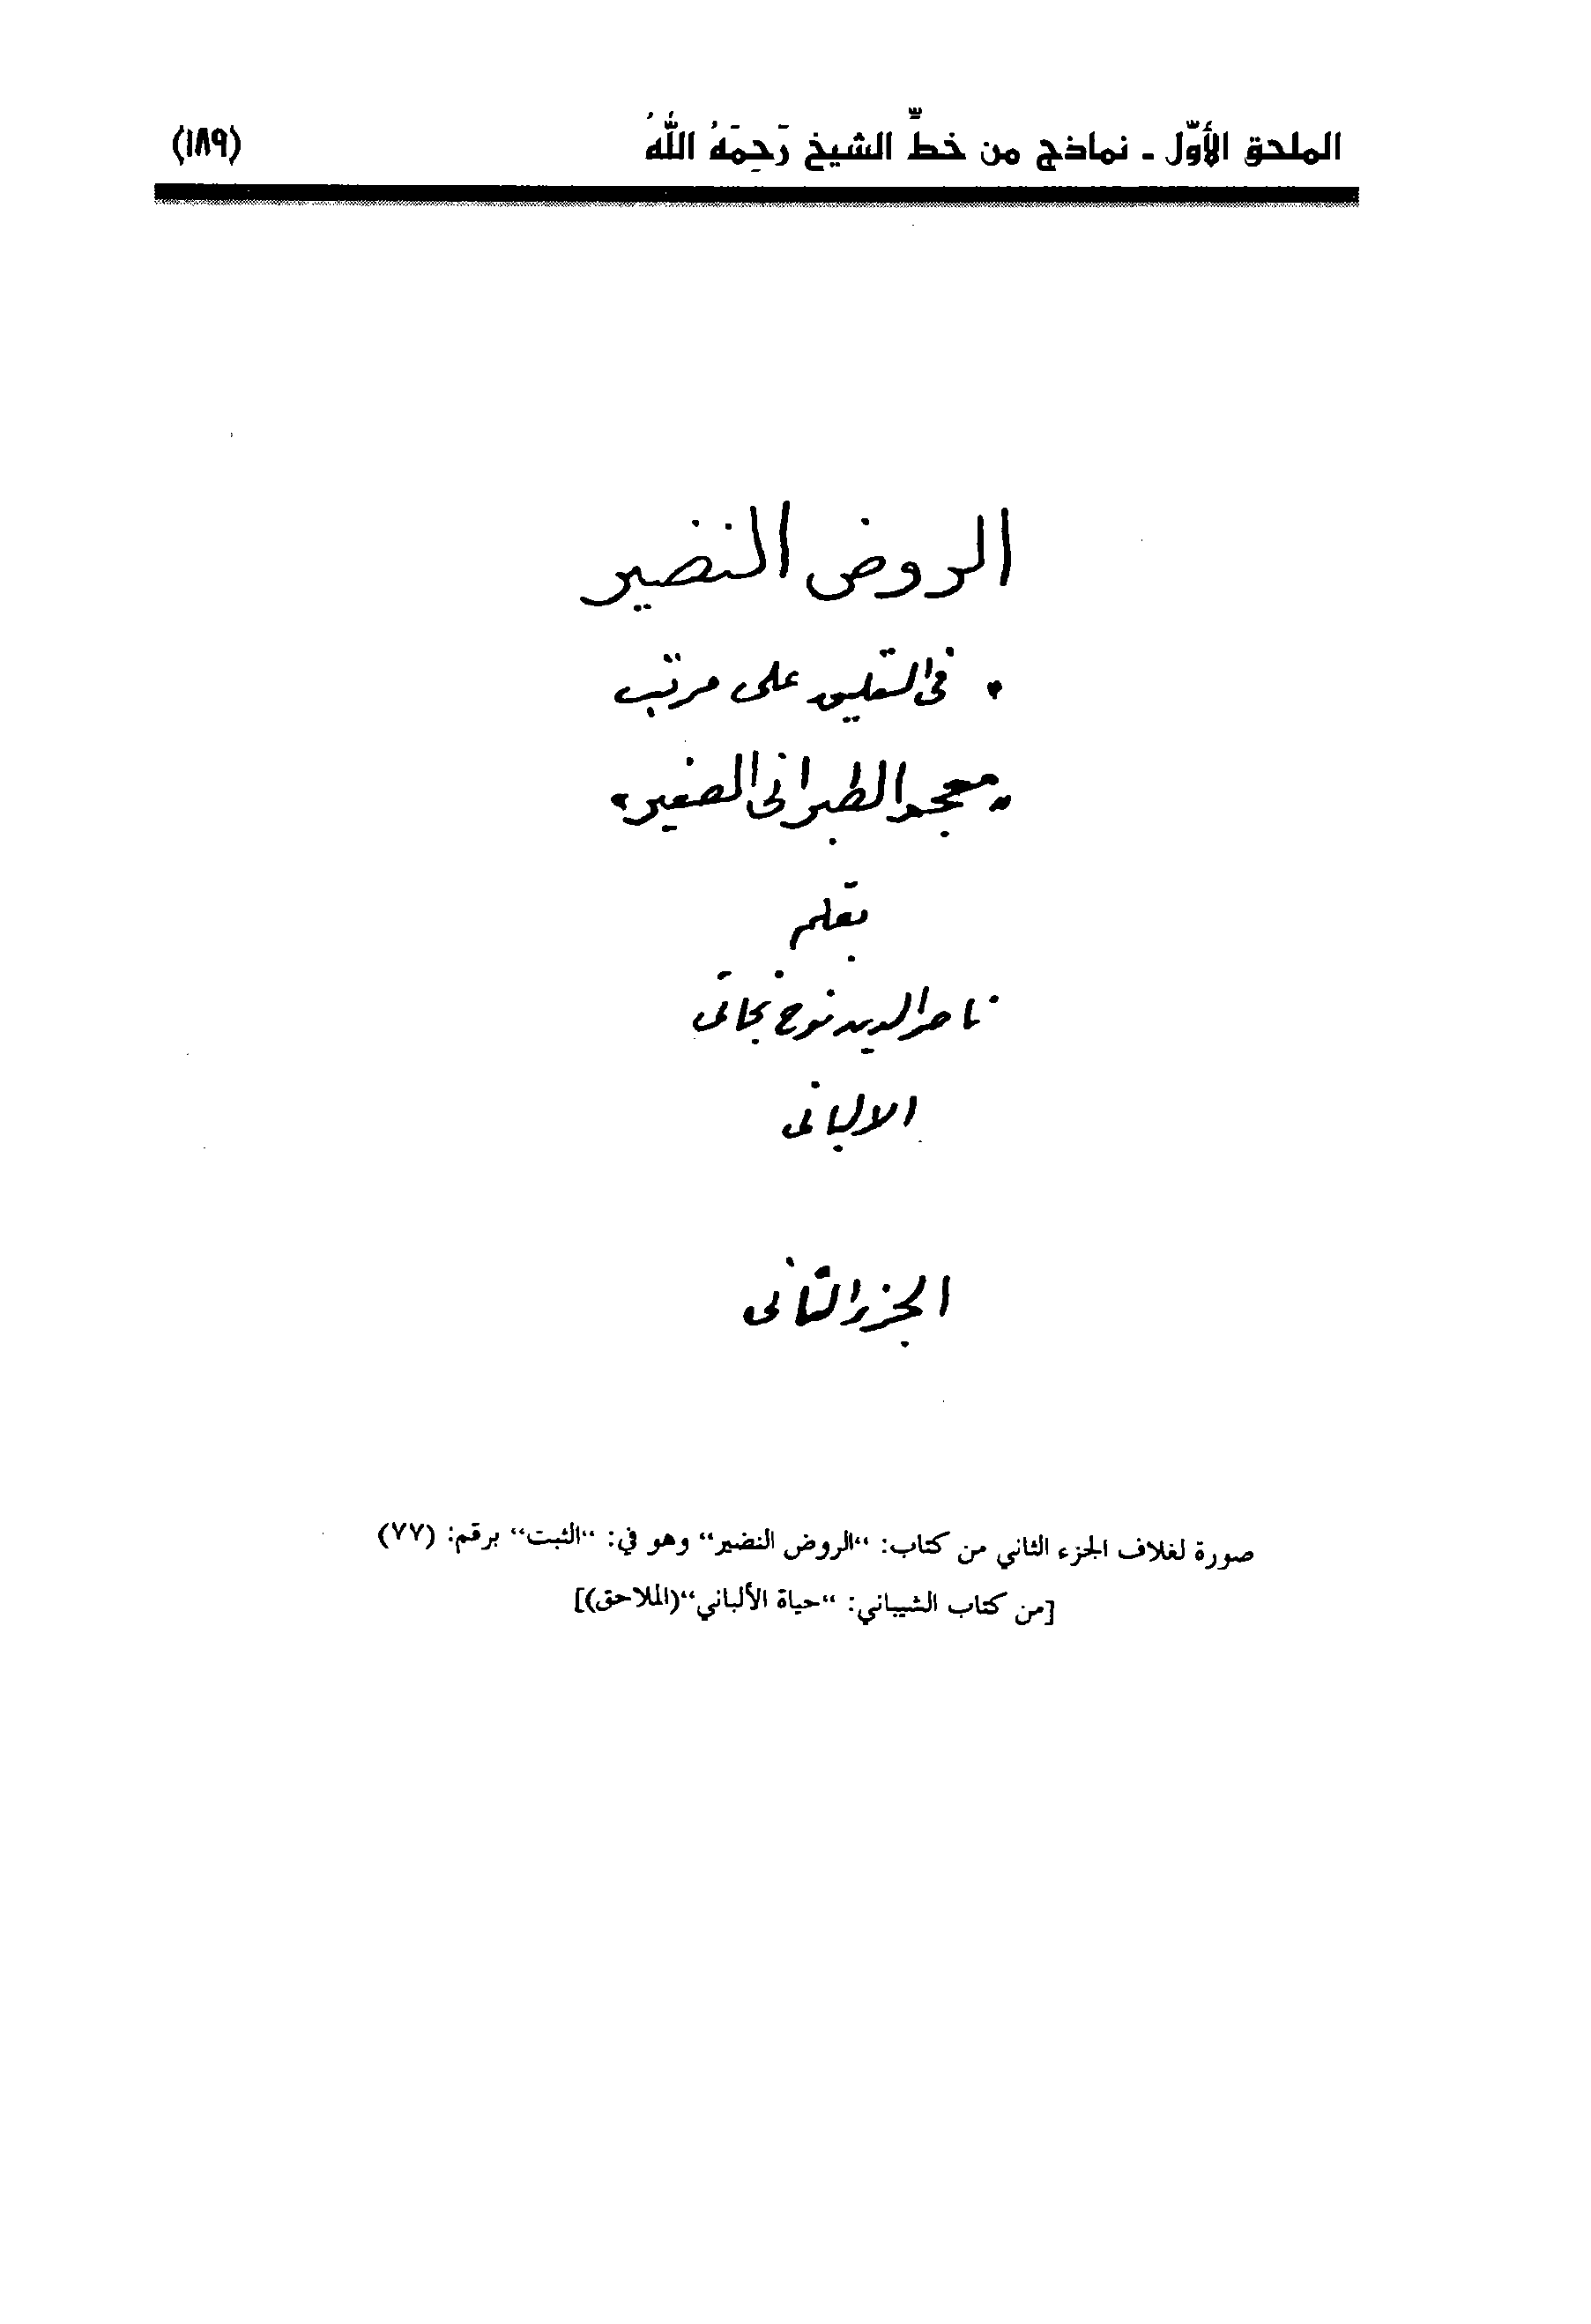 الملحق الأوّل ـ نماذج من خطِّ الشيخ رَحِمَهُ اللهُ (١٨٩)
الروض النضير
في التعليق على مرتب
"معجم الطبراني الصغير"
بقلم
ناصر الدين نوح نجاتي
الالباني
الجزء الثاني
صورة لغلاف الجزء الثاني من كتاب: "الروض النضير" وهو في: "الثبت" برقم: (٧٧)
[من كتاب الشيباني: "حياة الألباني"(الملاحق)]